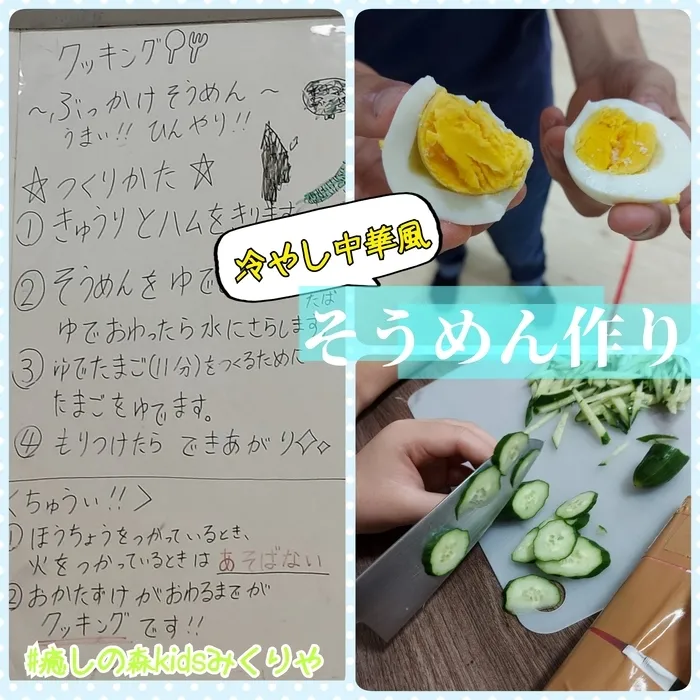 クッキング
～ぶっかけそうめん～
うまい!! ひんやり!!
☆つくりかた☆
① きゅうりとハムをきります
② そうめんをゆで
たば
ゆでおわったら水にさらします
③ ゆでたまご(11分)をつくるために
たまごをゆでます。
④ もりつけたら できあがり
<ちゅうい!!>
① ほうちょうをつかっているとき、
火をつかっているときは あそばない
② おかたずけがおわるまでが
クッキングです!!
冷やし中華風
そうめん作り
#癒しの森kidsみくりや